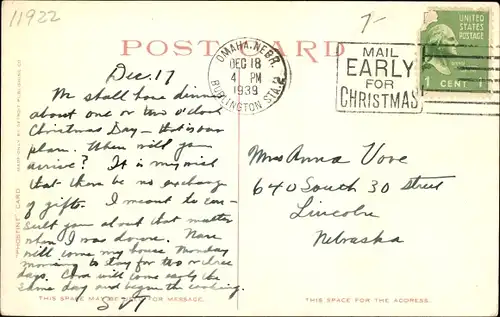 11922
7-
POST CARD
OMAHA, NEBR.
DEC 18
4 PM
1939
BURLINGTON STA.
MAIL
EARLY
FOR
CHRISTMAS
UNITED
STATES
POSTAGE
1 CENT 1
Dec. 17
We shall have dinner
about one or two o'clock
Christmas Day - that is our
plan. When will you
arrive? It is my wish
that there be no exchange
of gifts. I meant to con-
sult you about that matter
when I was down.
will come my house Monday
morning to stay for two or three
days. will come early the
same day and begin the cooking.
Mrs Anna Vore
640 South 30 street
Lincoln
Nebraska
"PHOSTINT" CARD
MADE ONLY BY DETROIT PUBLISHING CO.
THIS SPACE MAY BE USED FOR MESSAGE.
THIS SPACE FOR THE ADDRESS.